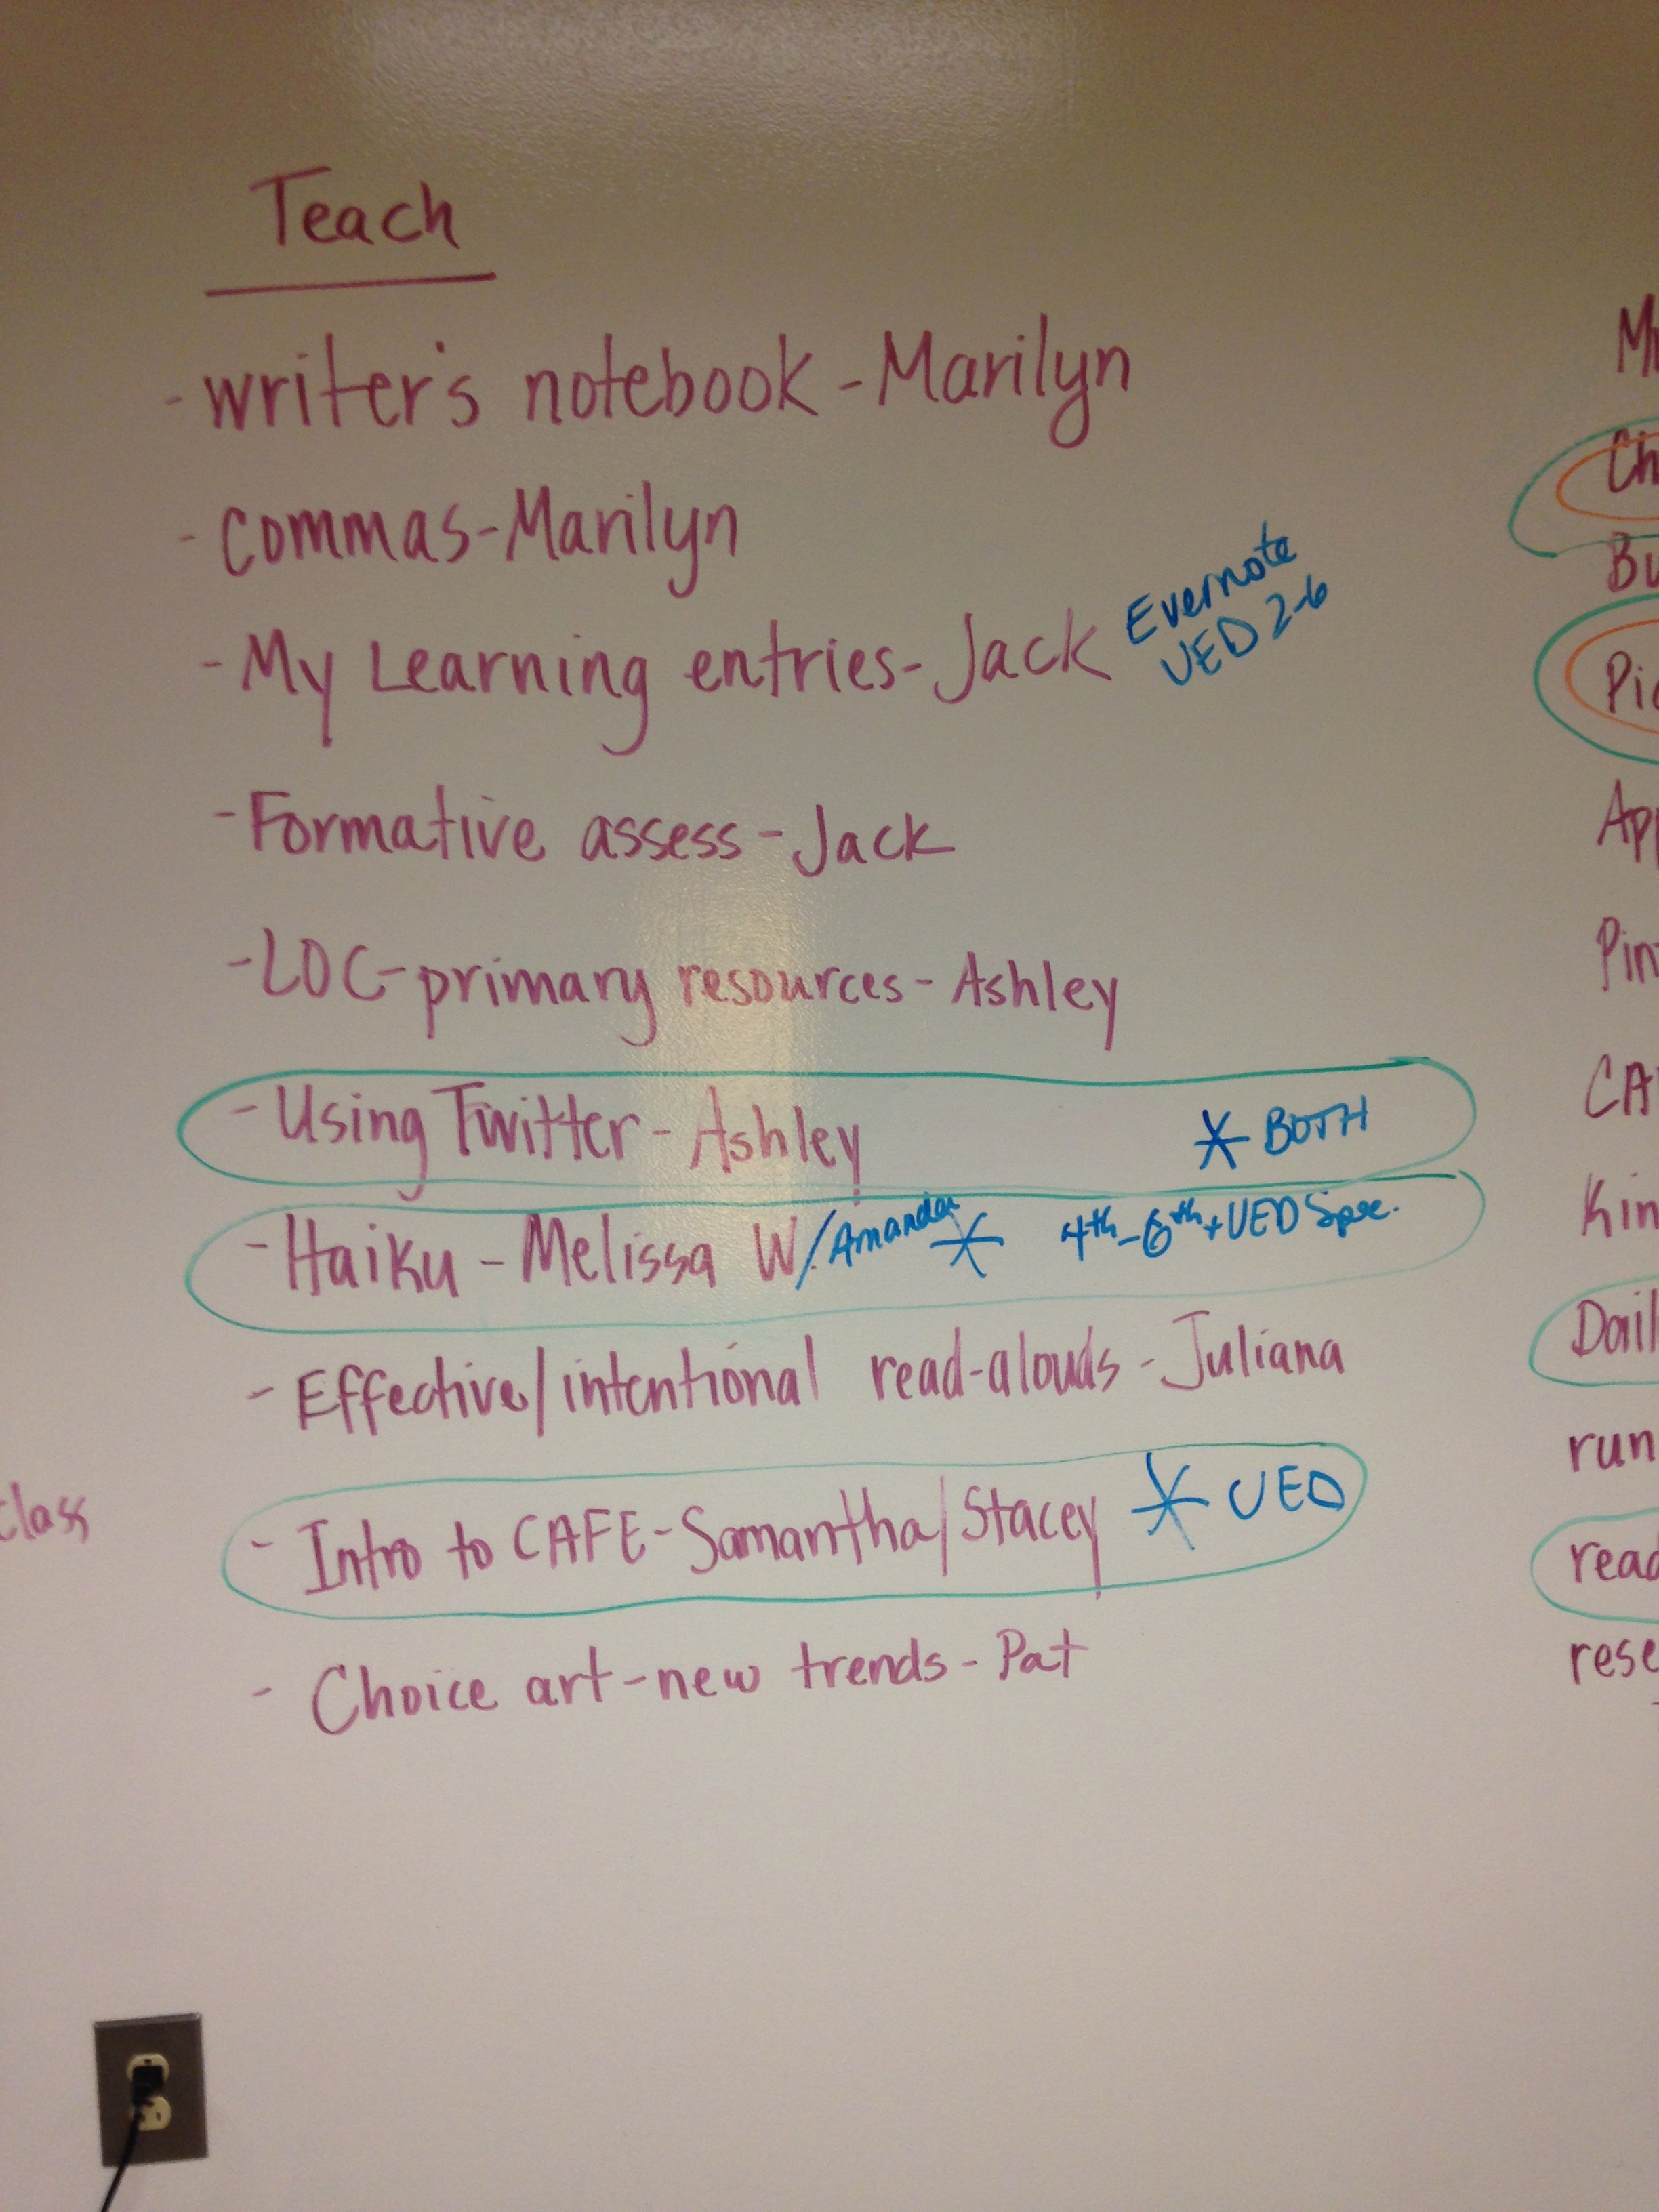 Teach
- writer's notebook - Marilyn
- commas - Marilyn
- My Learning entries - Jack Evernote
UED 2-6
- Formative assess - Jack
- LOC - primary resources - Ashley
- Using Twitter - Ashley * BOTH
- Haiku - Melissa W/Amanda * 4th-6th + UED Spec.
- Effective/intentional read-alouds - Juliana
- Intro to CAFE - Samantha/Stacey * UED
- Choice art - new trends - Pat
class
Ch
Bu
Pic
App
Pin
CA
Kin
Dail
run
read
rese